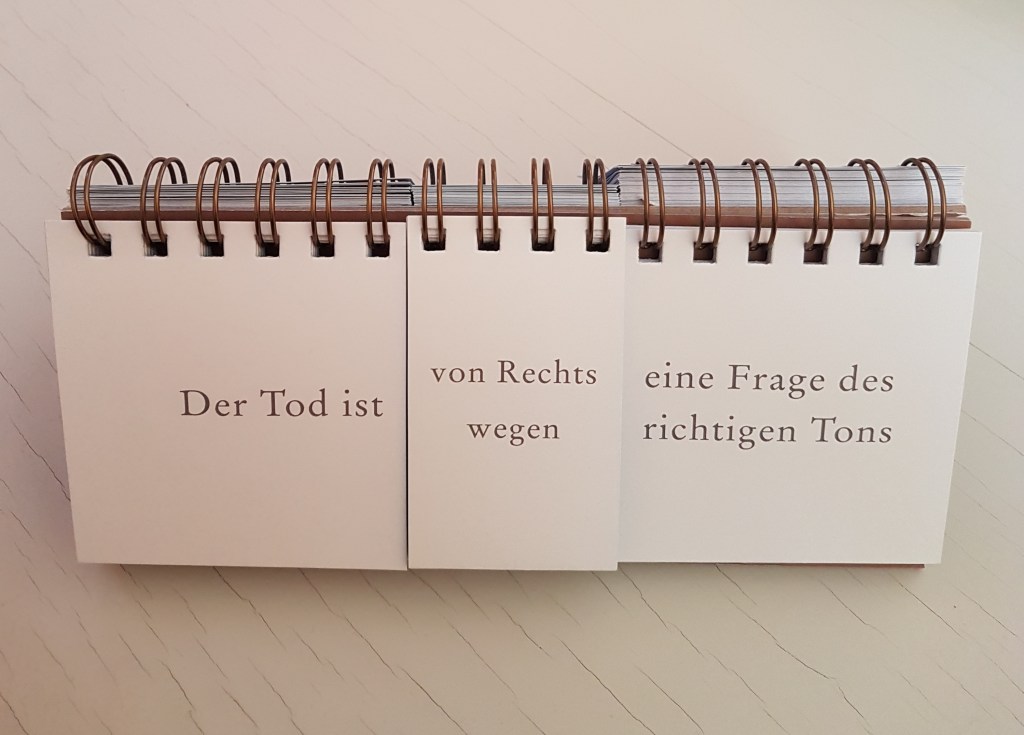 Der Tod ist
von Rechts
wegen
eine Frage des
richtigen Tons